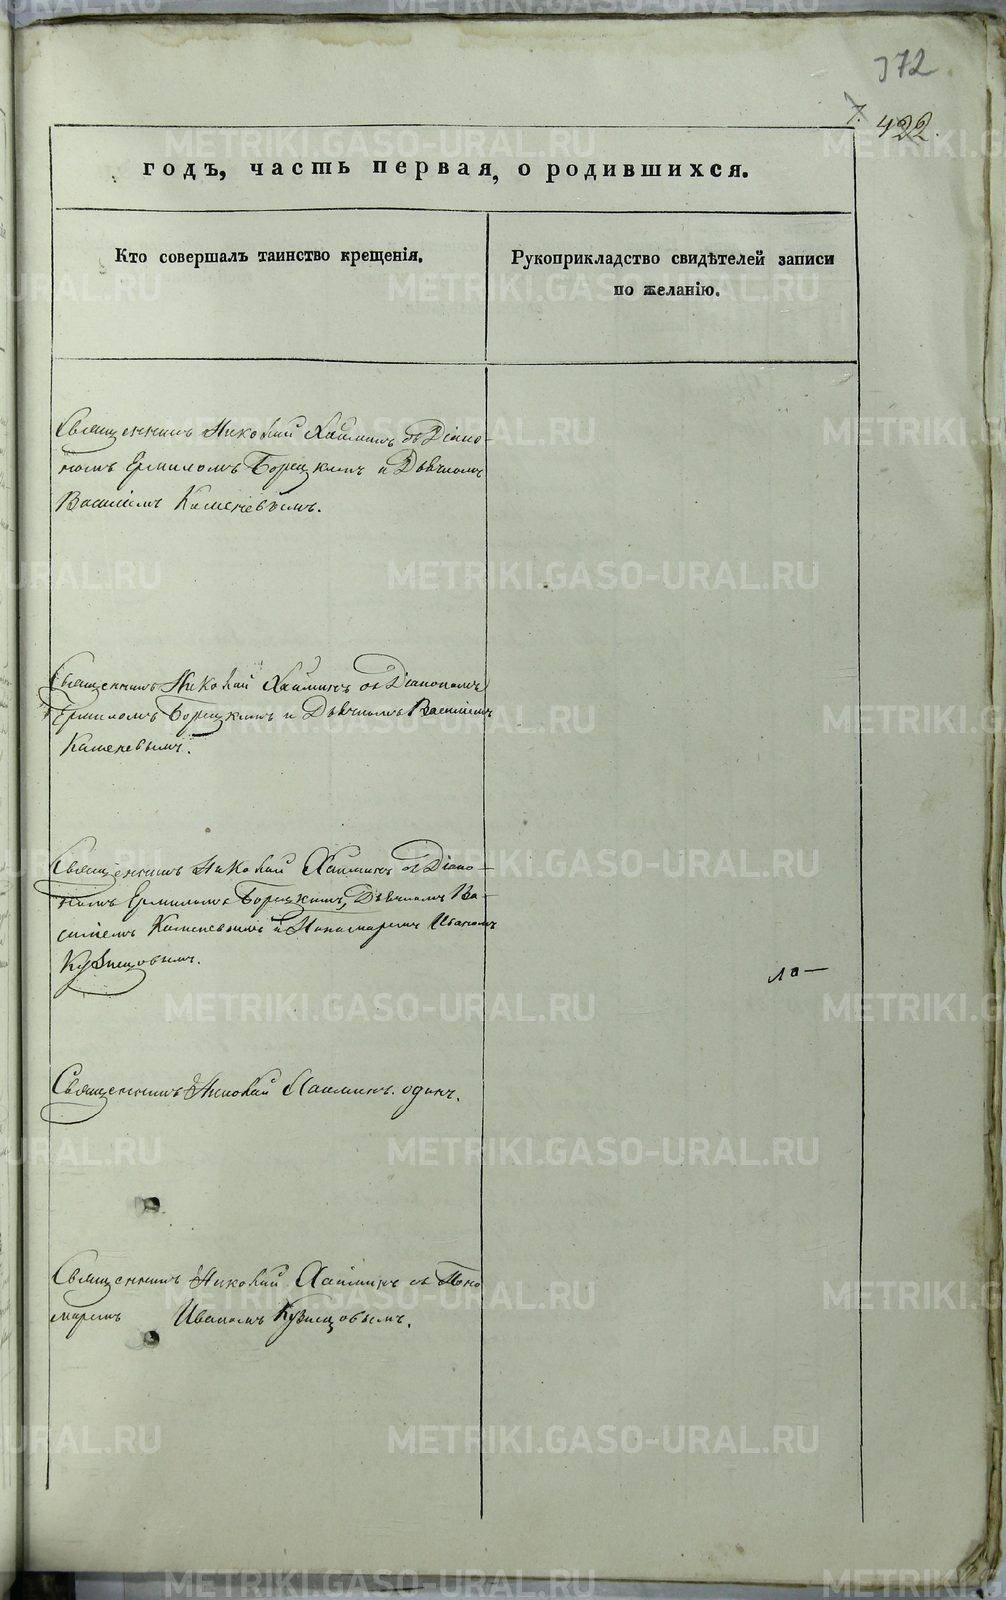 372
7.
422.
годъ, часть первая, о родившихся.
Кто совершалъ таинство крещенія.
Рукоприкладство свидѣтелей записи
по желанію.
Священникъ Николай Хаминъ съ Діако-
номъ Ермиломъ Борецкимъ и Дьячкомъ
Василіемъ Каменевымъ.
Священникъ Николай Хаминъ съ Діакономъ
Ермиломъ Борецкимъ и Дьячкомъ Василіемъ
Каменевымъ.
Священникъ Николай Хаминъ съ Діако-
номъ Ермиломъ Борецкимъ, Дьячкомъ Ва-
силіемъ Каменевымъ и Пономаремъ Иваномъ
Кузнецовымъ.
Священникъ Николай Хаминъ одинъ.
Священникъ Николай Хаминъ съ Поно
маремъ Иваномъ Кузнецовымъ.
METRIKI.GASO-URAL.RU